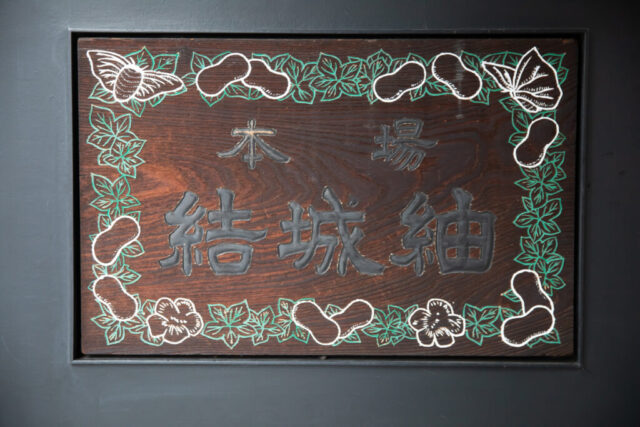 本場
結城紬